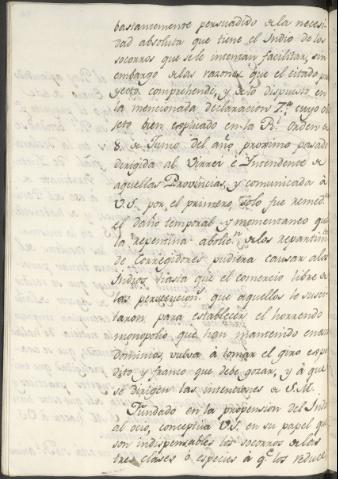 bastantemente persuadido de la necesi-
dad absoluta que tiene el Indio de los
socorros que se le intentan facilitar, sin
embargo de las razones que el citado pro
yecto comprehende, y de lo dispuesto en
la mencionada declaracion 7.ª cuyo ob
jeto bien explicado en la R.l orden de
8 de Junio del año proximo pasado
dirigida al Virrei e Intendente de
aquellas Provincias, y comunicada à
V.S. por el primero, solo fue remed.r
el daño temporal y momentaneo que
la repentina abolic.n de los repartim.tos
de Corregidores pudiera causar a los
Indios, hasta que el comercio libre de
las persecucion.s que aquellos le susci-
taron para establecer el horrendo
monopolio que han mantenido en sus
dominios, vuelva à tomar el giro expe
dito y franco que debe gozar, y à que
se dirigen las intenciones de S.M.
Fundado en la propension del Indio
al ocio, conceptua V.S. en su papel que
son indispensables los socorros de las
tres clases ò especies à q.e los reduce